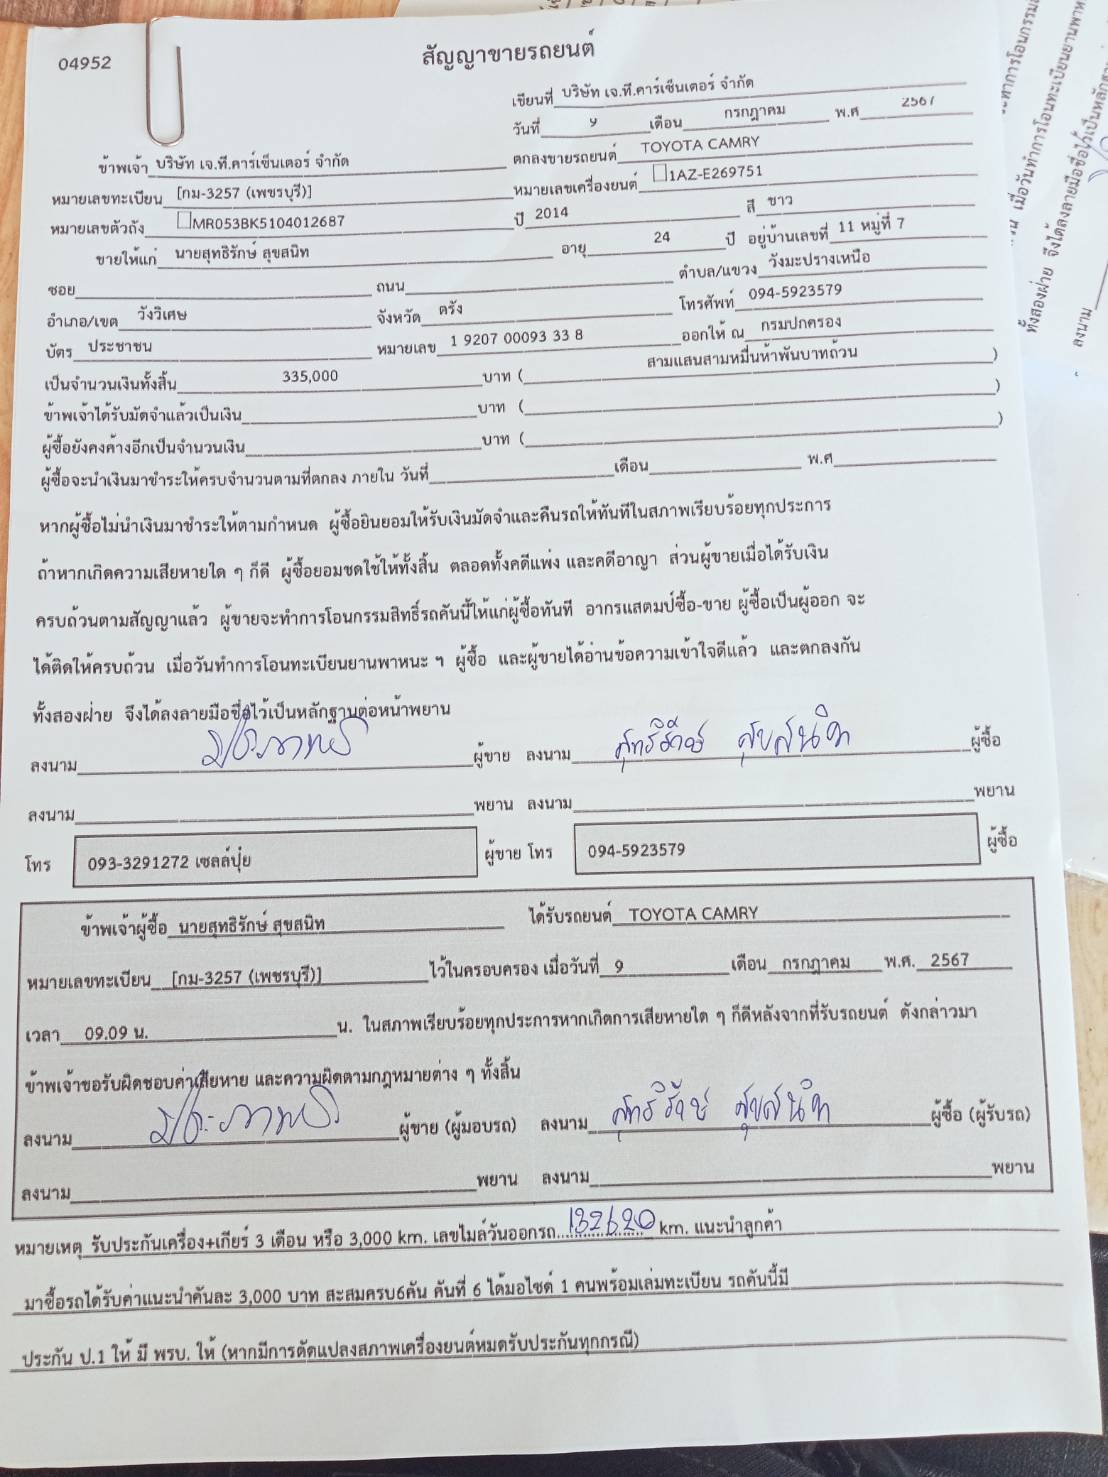 04952
สัญญาขายรถยนต์
เขียนที่ บริษัท เจ.ที.คาร์เซ็นเตอร์ จำกัด
วันที่ 9 เดือน กรกฎาคม พ.ศ 2567
ข้าพเจ้า บริษัท เจ.ที.คาร์เซ็นเตอร์ จำกัด ตกลงขายรถยนต์ TOYOTA CAMRY
หมายเลขทะเบียน [กม-3257 (เพชรบุรี)] หมายเลขเครื่องยนต์ 1AZ-E269751
หมายเลขตัวถัง MR053BK5104012687 ปี 2014 สี ขาว
ขายให้แก่ นายสุทธิรักษ์ สุขสนิท อายุ 24 ปี อยู่บ้านเลขที่ 11 หมู่ที่ 7
ซอย ถนน ตำบล/แขวง วังมะปรางเหนือ
อำเภอ/เขต วังวิเศษ จังหวัด ตรัง โทรศัพท์ 094-5923579
บัตร ประชาชน หมายเลข 1 9207 00093 33 8 ออกให้ ณ กรมปกครอง
เป็นจำนวนเงินทั้งสิ้น 335,000 บาท ( สามแสนสามหมื่นห้าพันบาทถ้วน )
ข้าพเจ้าได้รับมัดจำแล้วเป็นเงิน บาท ( )
ผู้ซื้อยังคงค้างอีกเป็นจำนวนเงิน บาท ( )
ผู้ซื้อจะนำเงินมาชำระให้ครบจำนวนตามที่ตกลง ภายใน วันที่ เดือน พ.ศ
หากผู้ซื้อไม่นำเงินมาชำระให้ตามกำหนด ผู้ซื้อยินยอมให้รับเงินมัดจำและคืนรถให้ทันทีในสภาพเรียบร้อยทุกประการ
ถ้าหากเกิดความเสียหายใด ๆ ก็ดี ผู้ซื้อยอมชดใช้ให้ทั้งสิ้น ตลอดทั้งคดีแพ่ง และคดีอาญา ส่วนผู้ขายเมื่อได้รับเงิน
ครบถ้วนตามสัญญาแล้ว ผู้ขายจะทำการโอนกรรมสิทธิ์รถคันนี้ให้แก่ผู้ซื้อทันที อากรแสตมป์ซื้อ-ขาย ผู้ซื้อเป็นผู้ออก จะ
ได้ติดให้ครบถ้วน เมื่อวันทำการโอนทะเบียนยานพาหนะ ฯ ผู้ซื้อ และผู้ขายได้อ่านข้อความเข้าใจดีแล้ว และตกลงกัน
ทั้งสองฝ่าย จึงได้ลงลายมือชื่อไว้เป็นหลักฐานต่อหน้าพยาน
ลงนาม ผู้ขาย ลงนาม สุทธิรักษ์ สุขสนิท ผู้ซื้อ
ลงนาม พยาน ลงนาม พยาน
โทร 093-3291272 เซลล์ปุ๋ย ผู้ขาย โทร 094-5923579 ผู้ซื้อ
ข้าพเจ้าผู้ซื้อ นายสุทธิรักษ์ สุขสนิท ได้รับรถยนต์ TOYOTA CAMRY
หมายเลขทะเบียน [กม-3257 (เพชรบุรี)] ไว้ในครอบครอง เมื่อวันที่ 9 เดือน กรกฎาคม พ.ศ. 2567
เวลา 09.09 น. น. ในสภาพเรียบร้อยทุกประการหากเกิดการเสียหายใด ๆ ก็ดีหลังจากที่รับรถยนต์ ดังกล่าวมา
ข้าพเจ้าขอรับผิดชอบค่าเสียหาย และความผิดตามกฎหมายต่าง ๆ ทั้งสิ้น
ลงนาม ผู้ขาย (ผู้มอบรถ) ลงนาม สุทธิรักษ์ สุขสนิท ผู้ซื้อ (ผู้รับรถ)
ลงนาม พยาน ลงนาม พยาน
หมายเหตุ รับประกันเครื่อง+เกียร์ 3 เดือน หรือ 3,000 km. เลขไมล์วันออกรถ 132620 km. แนะนำลูกค้า
มาซื้อรถได้รับค่าแนะนำคันละ 3,000 บาท สะสมครบ6คัน คันที่ 6 ได้มอไซด์ 1 คนพร้อมเล่มทะเบียน รถคันนี้มี
ประกัน ป.1 ให้ มี พรบ. ให้ (หากมีการดัดแปลงสภาพเครื่องยนต์หมดรับประกันทุกกรณี)
เมื่อวันทำการโอนทะเบียนยานพาห
ทั้งสองฝ่าย จึงได้ลงลายมือชื่อไว้เป็นหลักฐา
ลงนาม